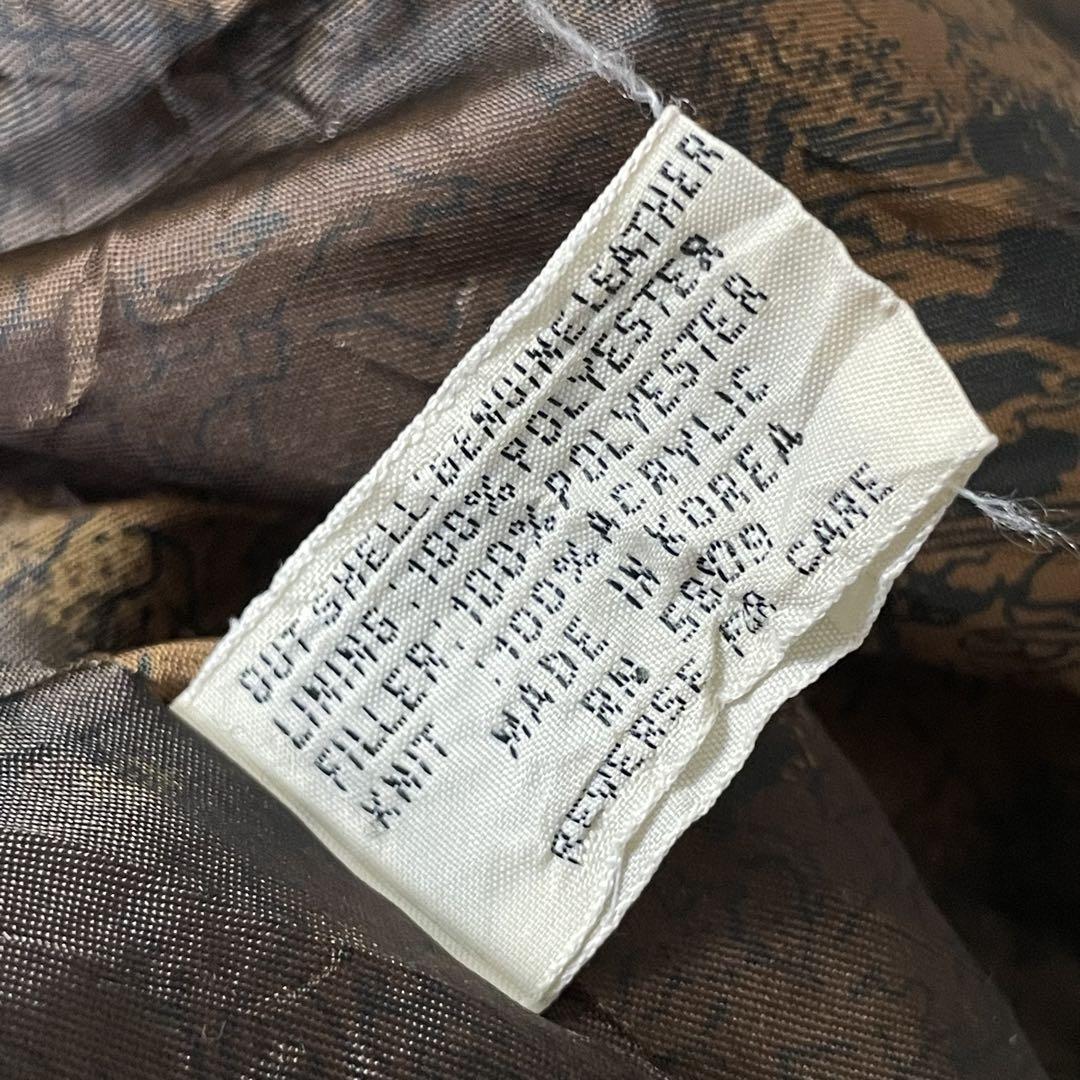 OUTSHELL:GENUINE LEATHER
LINING :100% POLYESTER
FILLER :100% POLYESTER
KNIT :100% ACRYLIC
MADE IN KOREA
RN 58209
REVERSE FOR CARE